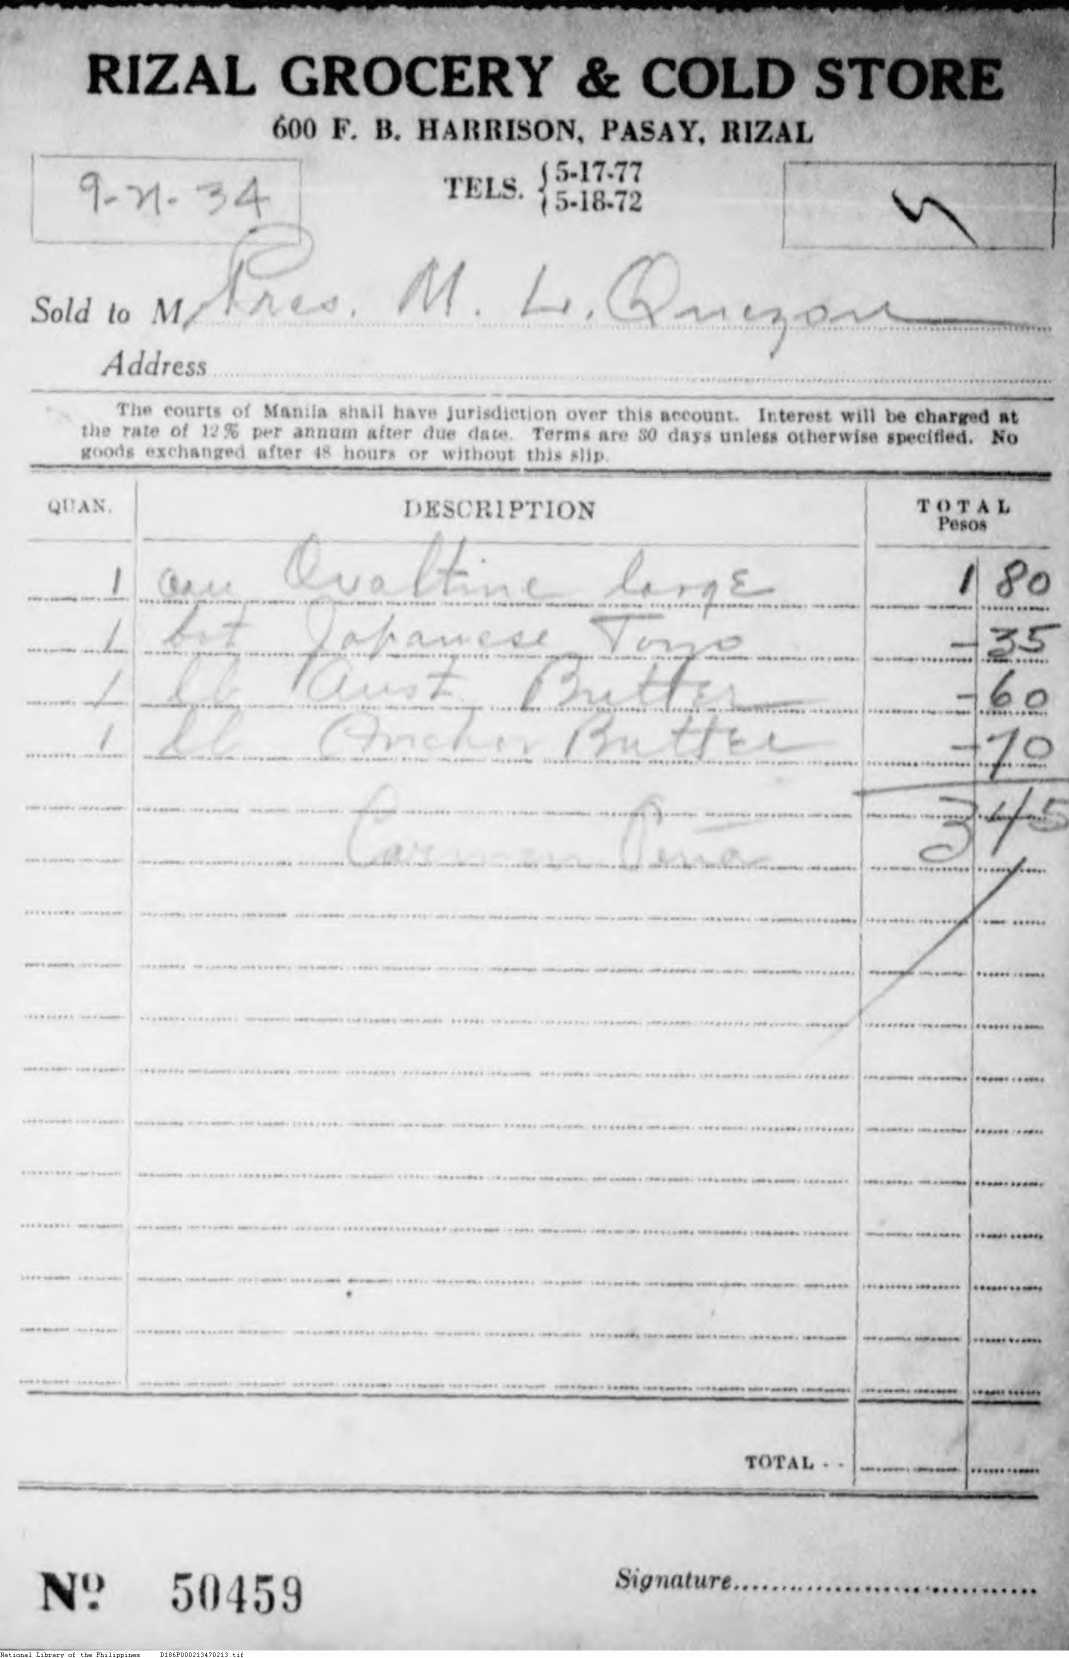 RIZAL GROCERY & COLD STORE
600 F. B. HARRISON, PASAY, RIZAL
9-21-34
TELS. { 5-17-77
5-18-72
Sold to M Pres. M. L. Quezon
Address
The courts of Manila shall have jurisdiction over this account. Interest will be charged at
the rate of 12% per annum after due date. Terms are 30 days unless otherwise specified. No
goods exchanged after 48 hours or without this slip.
QUAN. DESCRIPTION TOTAL
Pesos
1 can Ovaltine large 1 80
1 bot Japanese Toyo - 35
1 lb Aust. Butter - 60
1 lb Anchor Butter - 70
3 45
Carmen Peña
TOTAL - -
Nº 50459 Signature
National Library of the Philippines D186P000213470213.tif